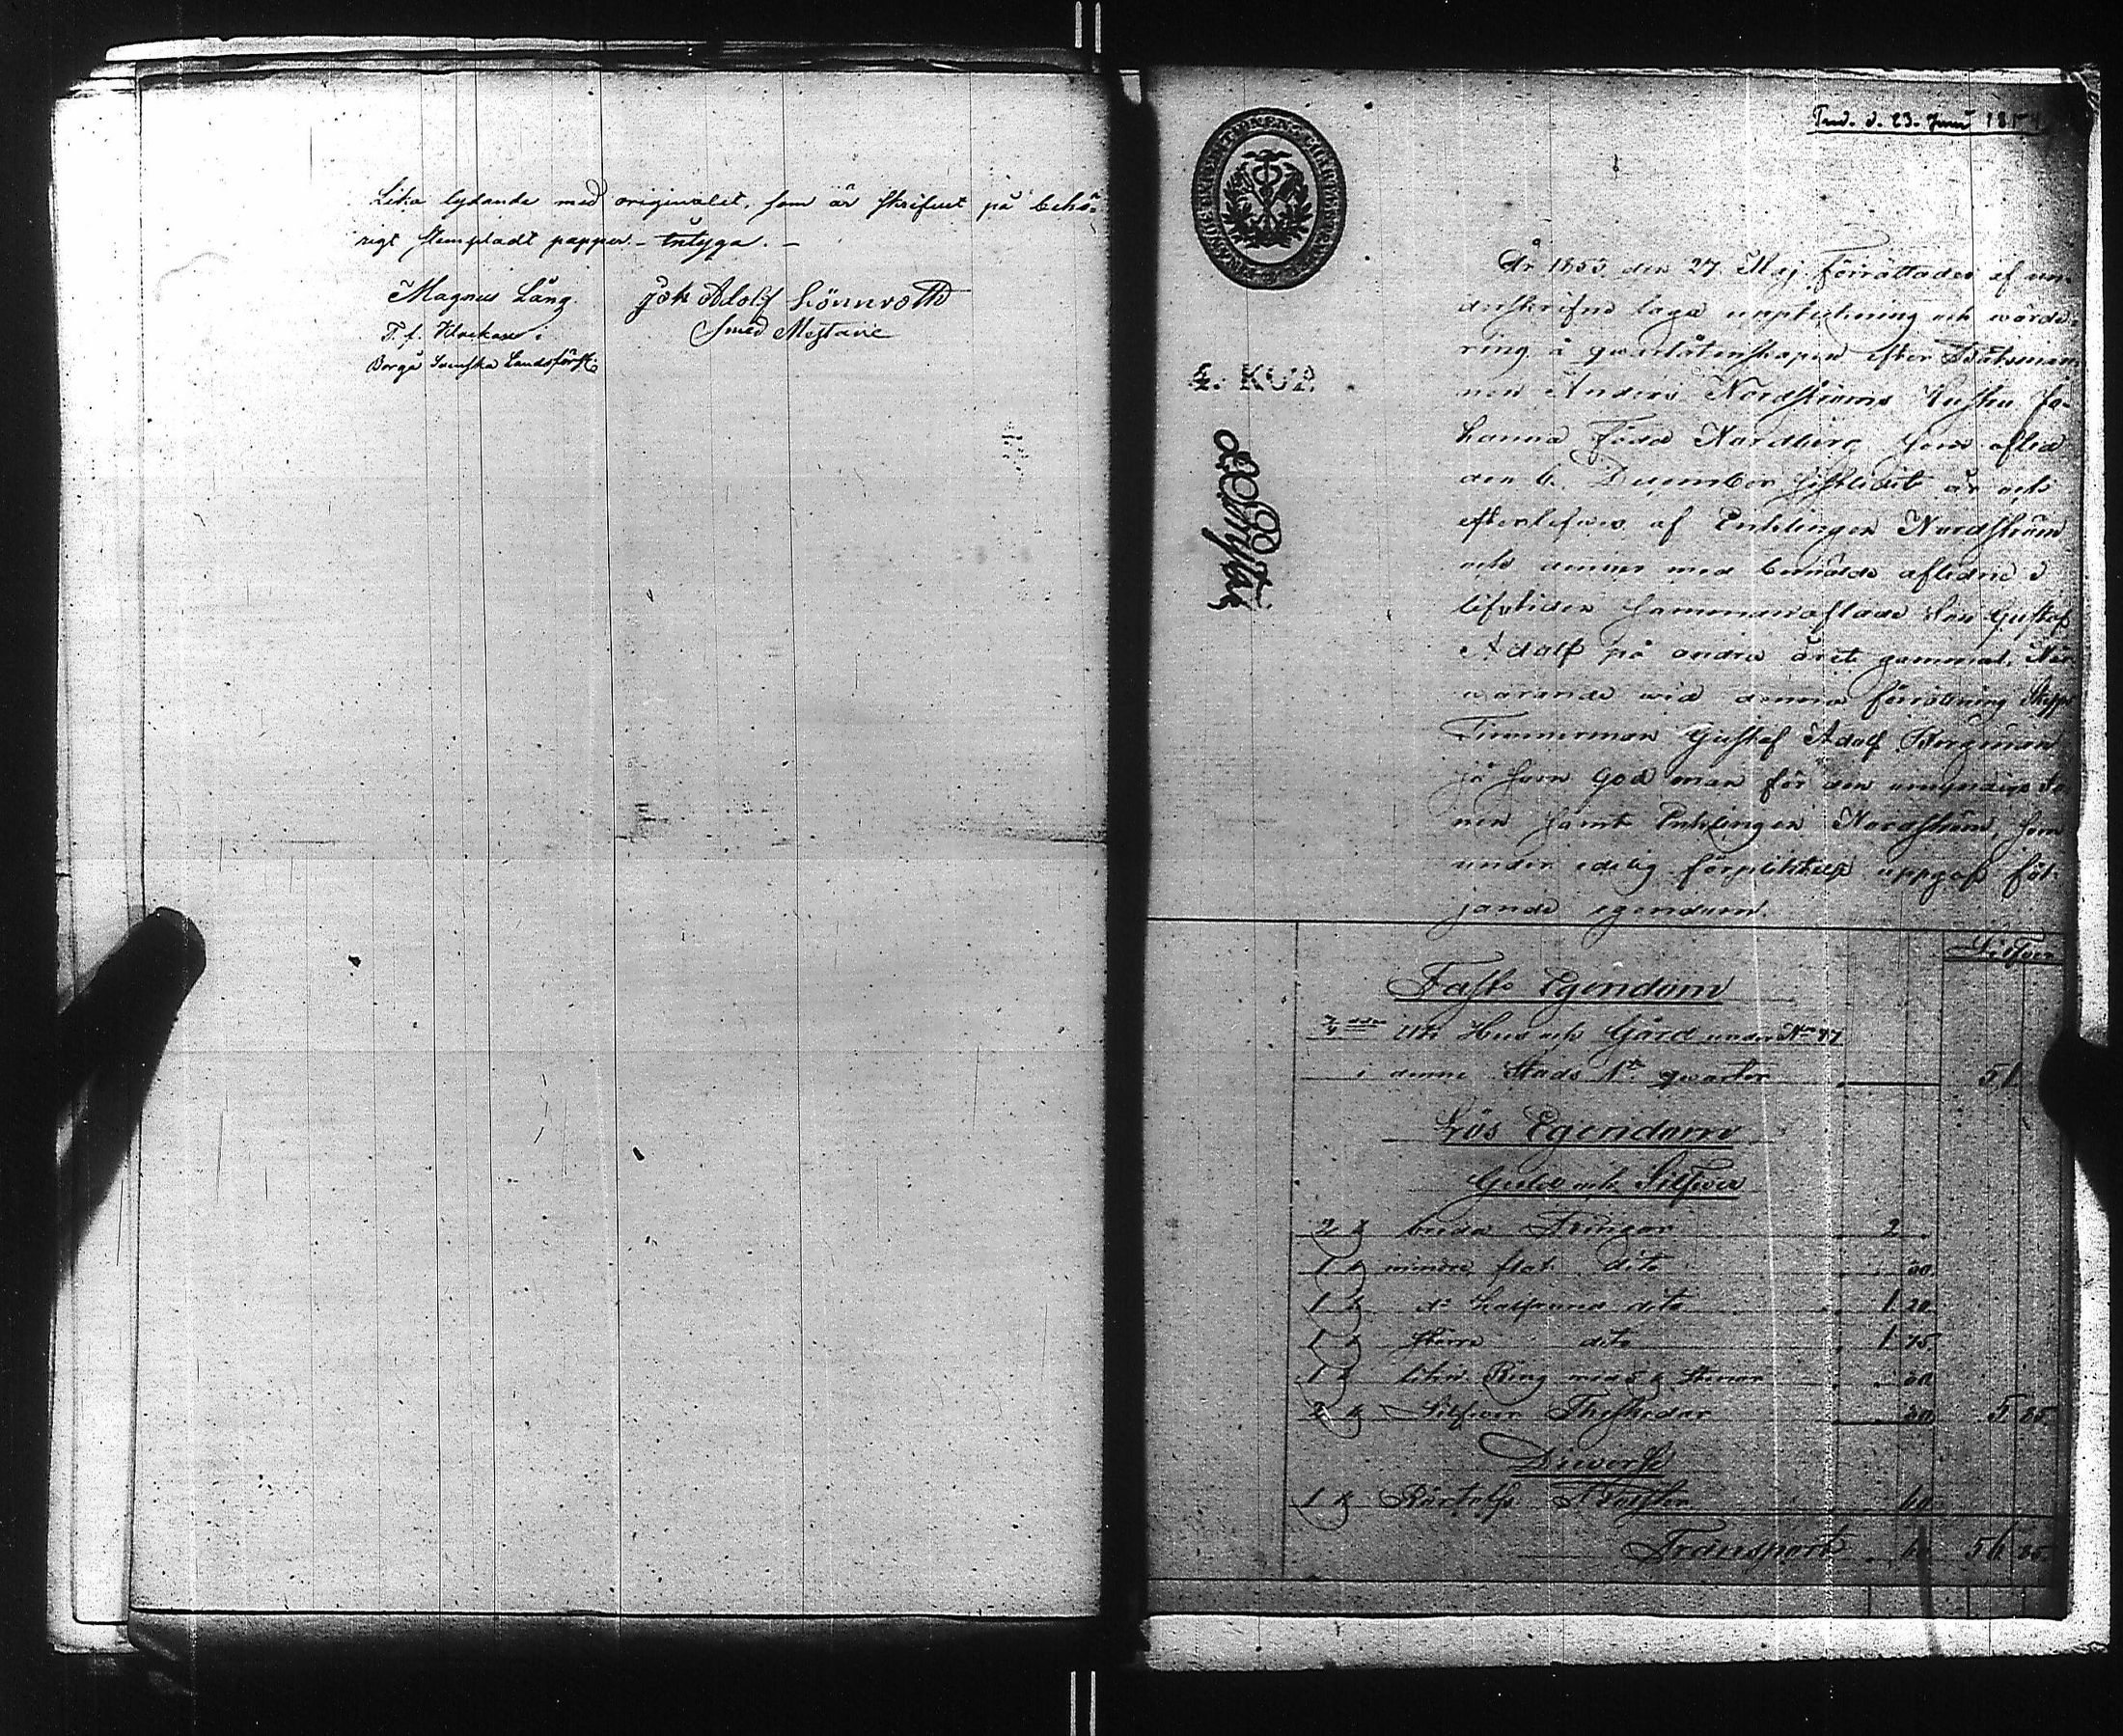 Lika lydande med originalet, som är skrifvet på behö-
rigt stempladt papper. – intyga. –
Magnus Lång. Joh Adolf Lönnroth
T. f. Klockare i Smed Mästare
Borgå Svenska Landsförs:
Pred. d. 23. Juni 1854
4. KOP.
År 1853 den 27 Maj förrättades af un-
derskrifne laga uppteckning och wärde-
ring å qwarlåtenskapen efter Båtsman-
nen Anders Nordströms Hustru Jo-
hanna född Nordberg som afled
den 6 December sistledit år och
efterlefves af Enklingen Nordström
och denne med bemälde aflidne i
lifstiden sammanaflade Son Gustaf
Adolf på andra året gammal. När-
warande wid denna förrättning Skepps
Timmerman Gustaf Adolf Bergman
så som God man för den omyndige So-
nen samt Enklingen Nordström, som
under edelig förpliktelse uppgaf föl-
jande egendom.
Silfver
Fast Egendom
Utі Hus och Gård under No 47
i denne Stads 1ta qwarter 51
Lös Egendom
Guld och Silfver
2 st breda Fringar 2
1 st mindre flat dito
1 st do dito 1 20
1 st större dito 1 15
1 st Ring med Stenar
2 st Silfver Theskedar 5 85
Diverse
1 st 60
Transport 60 56 85